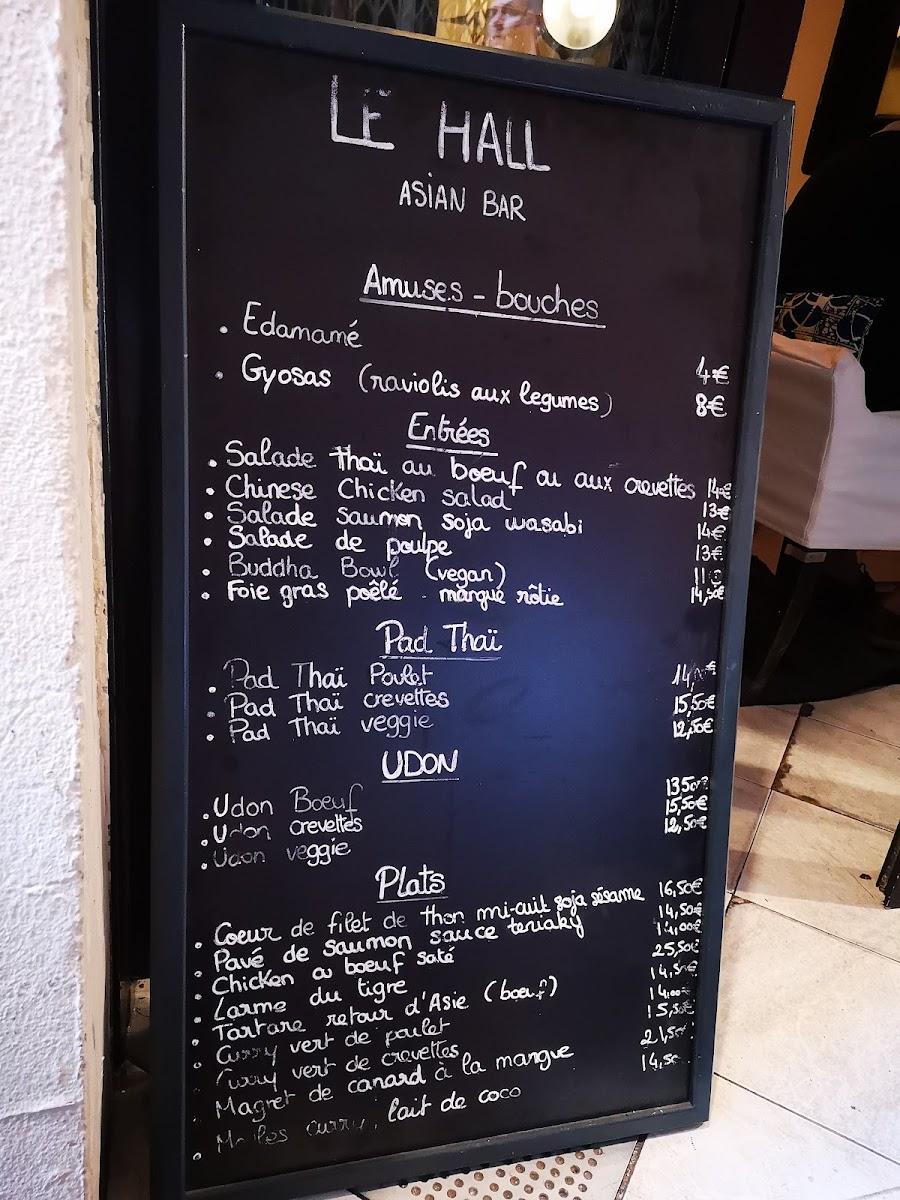 LE HALL
ASIAN BAR
Amuses - bouches
• Edamamé 4€
• Gyosas (raviolis aux legumes) 8€
Entrées
• Salade Thaï au boeuf ou aux crevettes 14€
• Chinese Chicken salad 13€
• Salade saumon soja wasabi 14€
• Salade de poulpe 13€
• Buddha Bowl (vegan) 11
• Foie gras poêlé - mangue rôtie 14,50€
Pad Thaï
• Pad Thaï Poulet 14, €
• Pad Thaï crevettes 15,50€
• Pad Thaï veggie 12,50€
UDON
• Udon Boeuf 13,50€
• Udon crevettes 15,50€
• Udon veggie 12,50€
Plats
• Coeur de filet de thon mi-cuit soja sésame 16,50€
• Pavé de saumon sauce teriaky 14,50€
• Chicken ou boeuf saté 14,00€
• Larme du tigre 25,50€
• Tartare retour d'Asie (boeuf) 14,50€
• Curry vert de poulet 14,00€
• Curry vert de crevettes 15,50€
• Magret de canard à la mangue 21,50
• curry, lait de coco 14,50